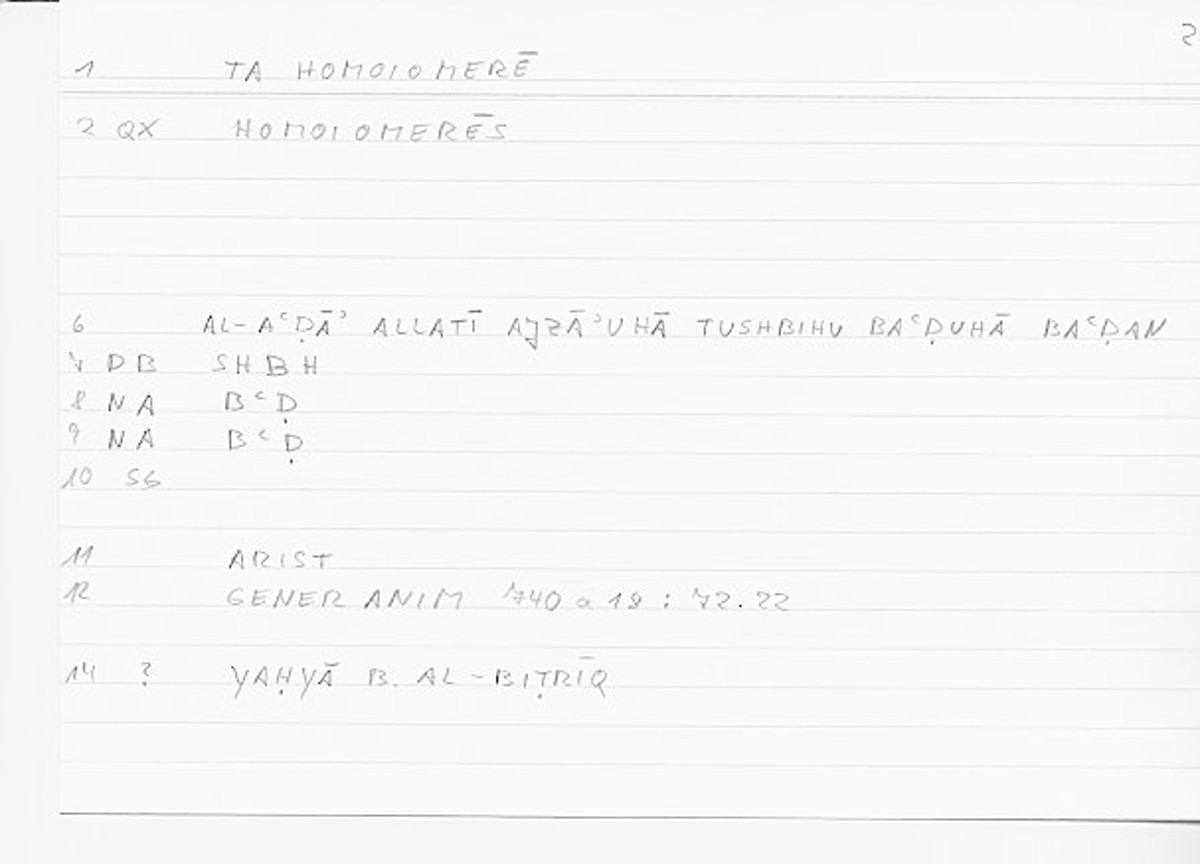 2
1 TA HOMOIOMERĒ
2 QX HOMOIOMERĒS
6 AL-AʿḌĀʾ ALLATĪ AJZĀʾUHĀ TUSHBIHU BAʿḌUHĀ BAʿḌAN
7 DB SHBH
8 NA BʿḌ
9 NA BʿḌ
10 SG
11 ARIST
12 GENER ANIM 740 a 18 : 72.22
14 ? YAḤYĀ B. AL-BIṬRĪQ